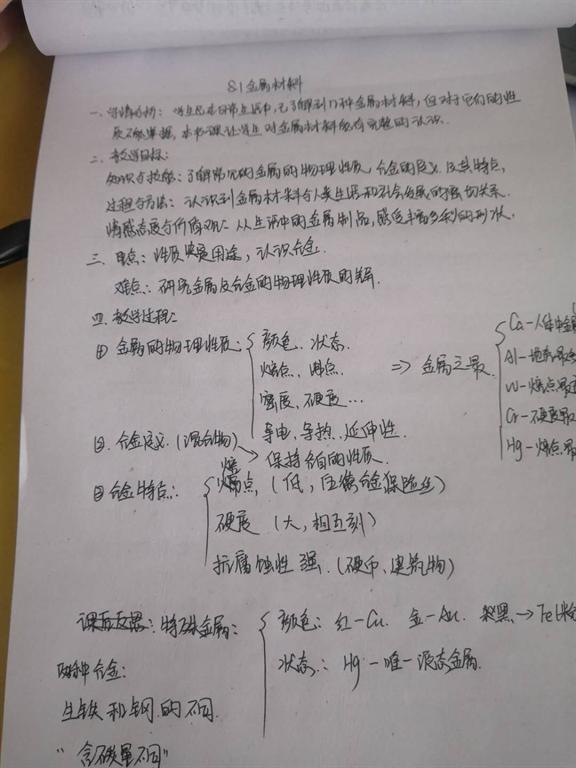 8.1 金属材料
一、学情分析：学生在日常生活中，已了解到几种金属材料，但对于它们的性
质不能掌握，本节课让学生对金属材料能有完整的认识.
二、教学目标：
知识与技能：了解常见的金属的物理性质，合金的定义及其特点，
过程与方法：认识到金属材料与人类生活和社会发展的密切关系.
情感态度与价值观：从生活中的金属制品，感受丰富多彩的形状.
三、重点：性质决定用途，认识合金.
难点：研究金属及合金的物理性质的关系.
四、教学过程：
① 金属的物理性质：颜色、状态.
熔点、沸点.
密度、硬度…
导电、导热、延伸性.
⇒ 金属之最
Ca－人体中金
Al－地壳最
W－熔点最
Cr－硬度最
Hg－熔点最
②.合金定义.（混合物）→保持各自的性质.
③ 合金特点：熔点，（低，保险丝）
硬度 （大，相互刻）
抗腐蚀性强.（硬币、）
特殊金属：颜色：红－Cu. 金－Au. 黑→Fe粉
状态：Hg－唯一液态金属.
两种合金：
生铁和钢的不同
“含碳量不同”